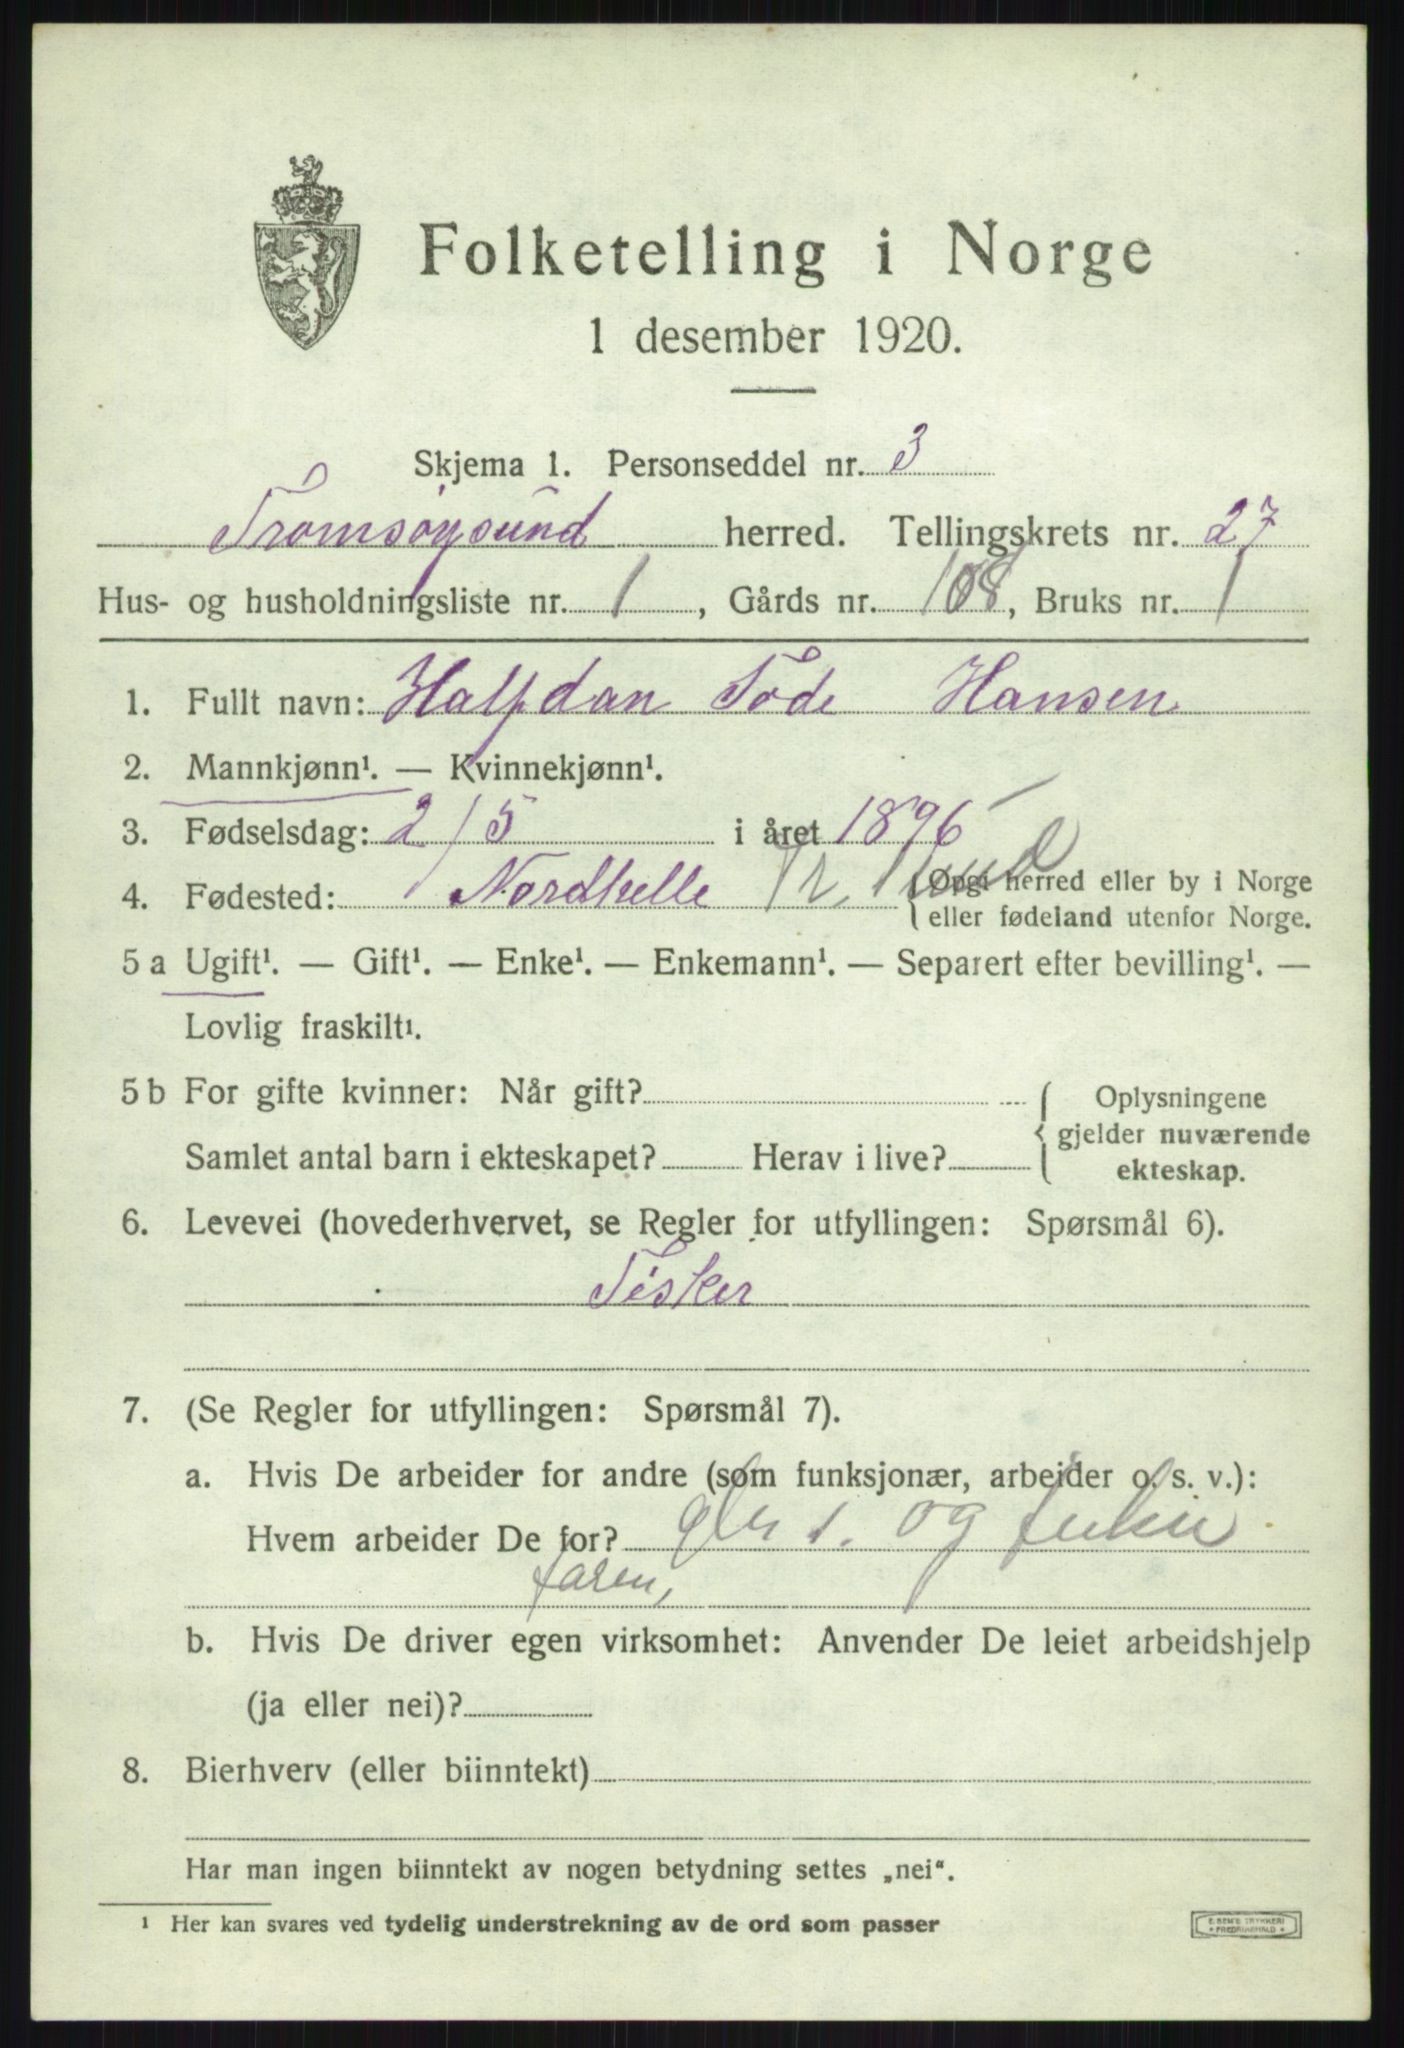 Folketelling i Norge
1 desember 1920.
Skjema 1. Personseddel nr. 3
Tromsøysund herred. Tellingskrets nr. 27
Hus- og husholdningsliste nr. 1, Gårds nr. 108, Bruks nr. 1
1. Fullt navn: Halfdan Tode Hansen
2. Mannkjønn¹. — Kvinnekjønn¹.
3. Fødselsdag: 2/5 i året 1896
4. Fødested: Nordhelle Tr. sund {Opgi herred eller by i Norge
eller fødeland utenfor Norge.
5 a Ugift¹. — Gift¹. — Enke¹. — Enkemann¹. — Separert efter bevilling¹. —
Lovlig fraskilt¹.
5 b For gifte kvinner: Når gift? { Oplysningene
gjelder nuværende
Samlet antal barn i ekteskapet? Herav i live?
ekteskap.
6. Levevei (hovederhvervet, se Regler for utfyllingen: Spørsmål 6).
Fisker
7. (Se Regler for utfyllingen: Spørsmål 7).
a. Hvis De arbeider for andre (som funksjonær, arbeider o. s. v.):
Hvem arbeider De for? og
faren,
b. Hvis De driver egen virksomhet: Anvender De leiet arbeidshjelp
(ja eller nei)?
8. Bierhverv (eller biinntekt)
Har man ingen biinntekt av nogen betydning settes „nei“.
¹ Her kan svares ved tydelig understrekning av de ord som passer
E. SEM'S TRYKKERI
* FREDRIKSHALD *